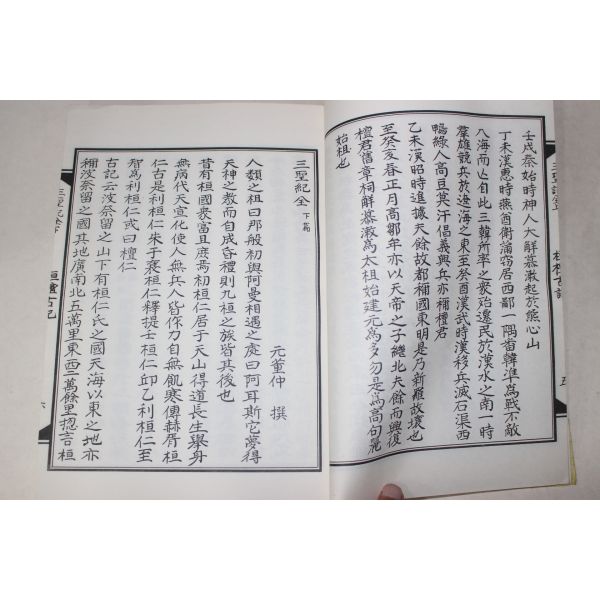 壬戌秦始時神人大解慕漱起於熊心山
丁未漢惠時燕酋衛滿窃居西鄙一隅番韓準為戰不敵
八海而亡自此三韓所率之衆殆遷民於漢水之南一時
羣雄競兵於遼海之東至癸酉漢武時漢移兵滅右渠西
鴨綠人高豆莫汗倡義興兵亦稱檀君
乙未漢昭時進據夫餘故都稱國東明是乃新羅故壤也
至癸亥春正月高鄒牟亦以天帝之子繼北夫餘而興復
檀君舊章祠解慕漱爲太祖始建元爲多勿是爲高句麗
始祖也
三聖紀全 下篇
元董仲 撰
人類之祖曰那般初與阿曼相遇之處曰阿耳斯它夢得
天神之教而自成昏禮則九桓之族皆其後也
昔有桓國衆富且庶焉初桓仁居于天山得道長生舉身
無病代天宣化使人無兵人皆作力自無飢寒傳赫胥桓
仁古是利桓仁朱于襄桓仁釋提壬桓仁邱乙利桓仁至
智爲利桓仁或曰檀仁
古記云波奈留之山下有桓仁氏之國天海以東之地亦
稱波奈留之國其地廣南北五萬里東西二萬餘里揔言桓
三聖紀全下
桓檀古記
六
五